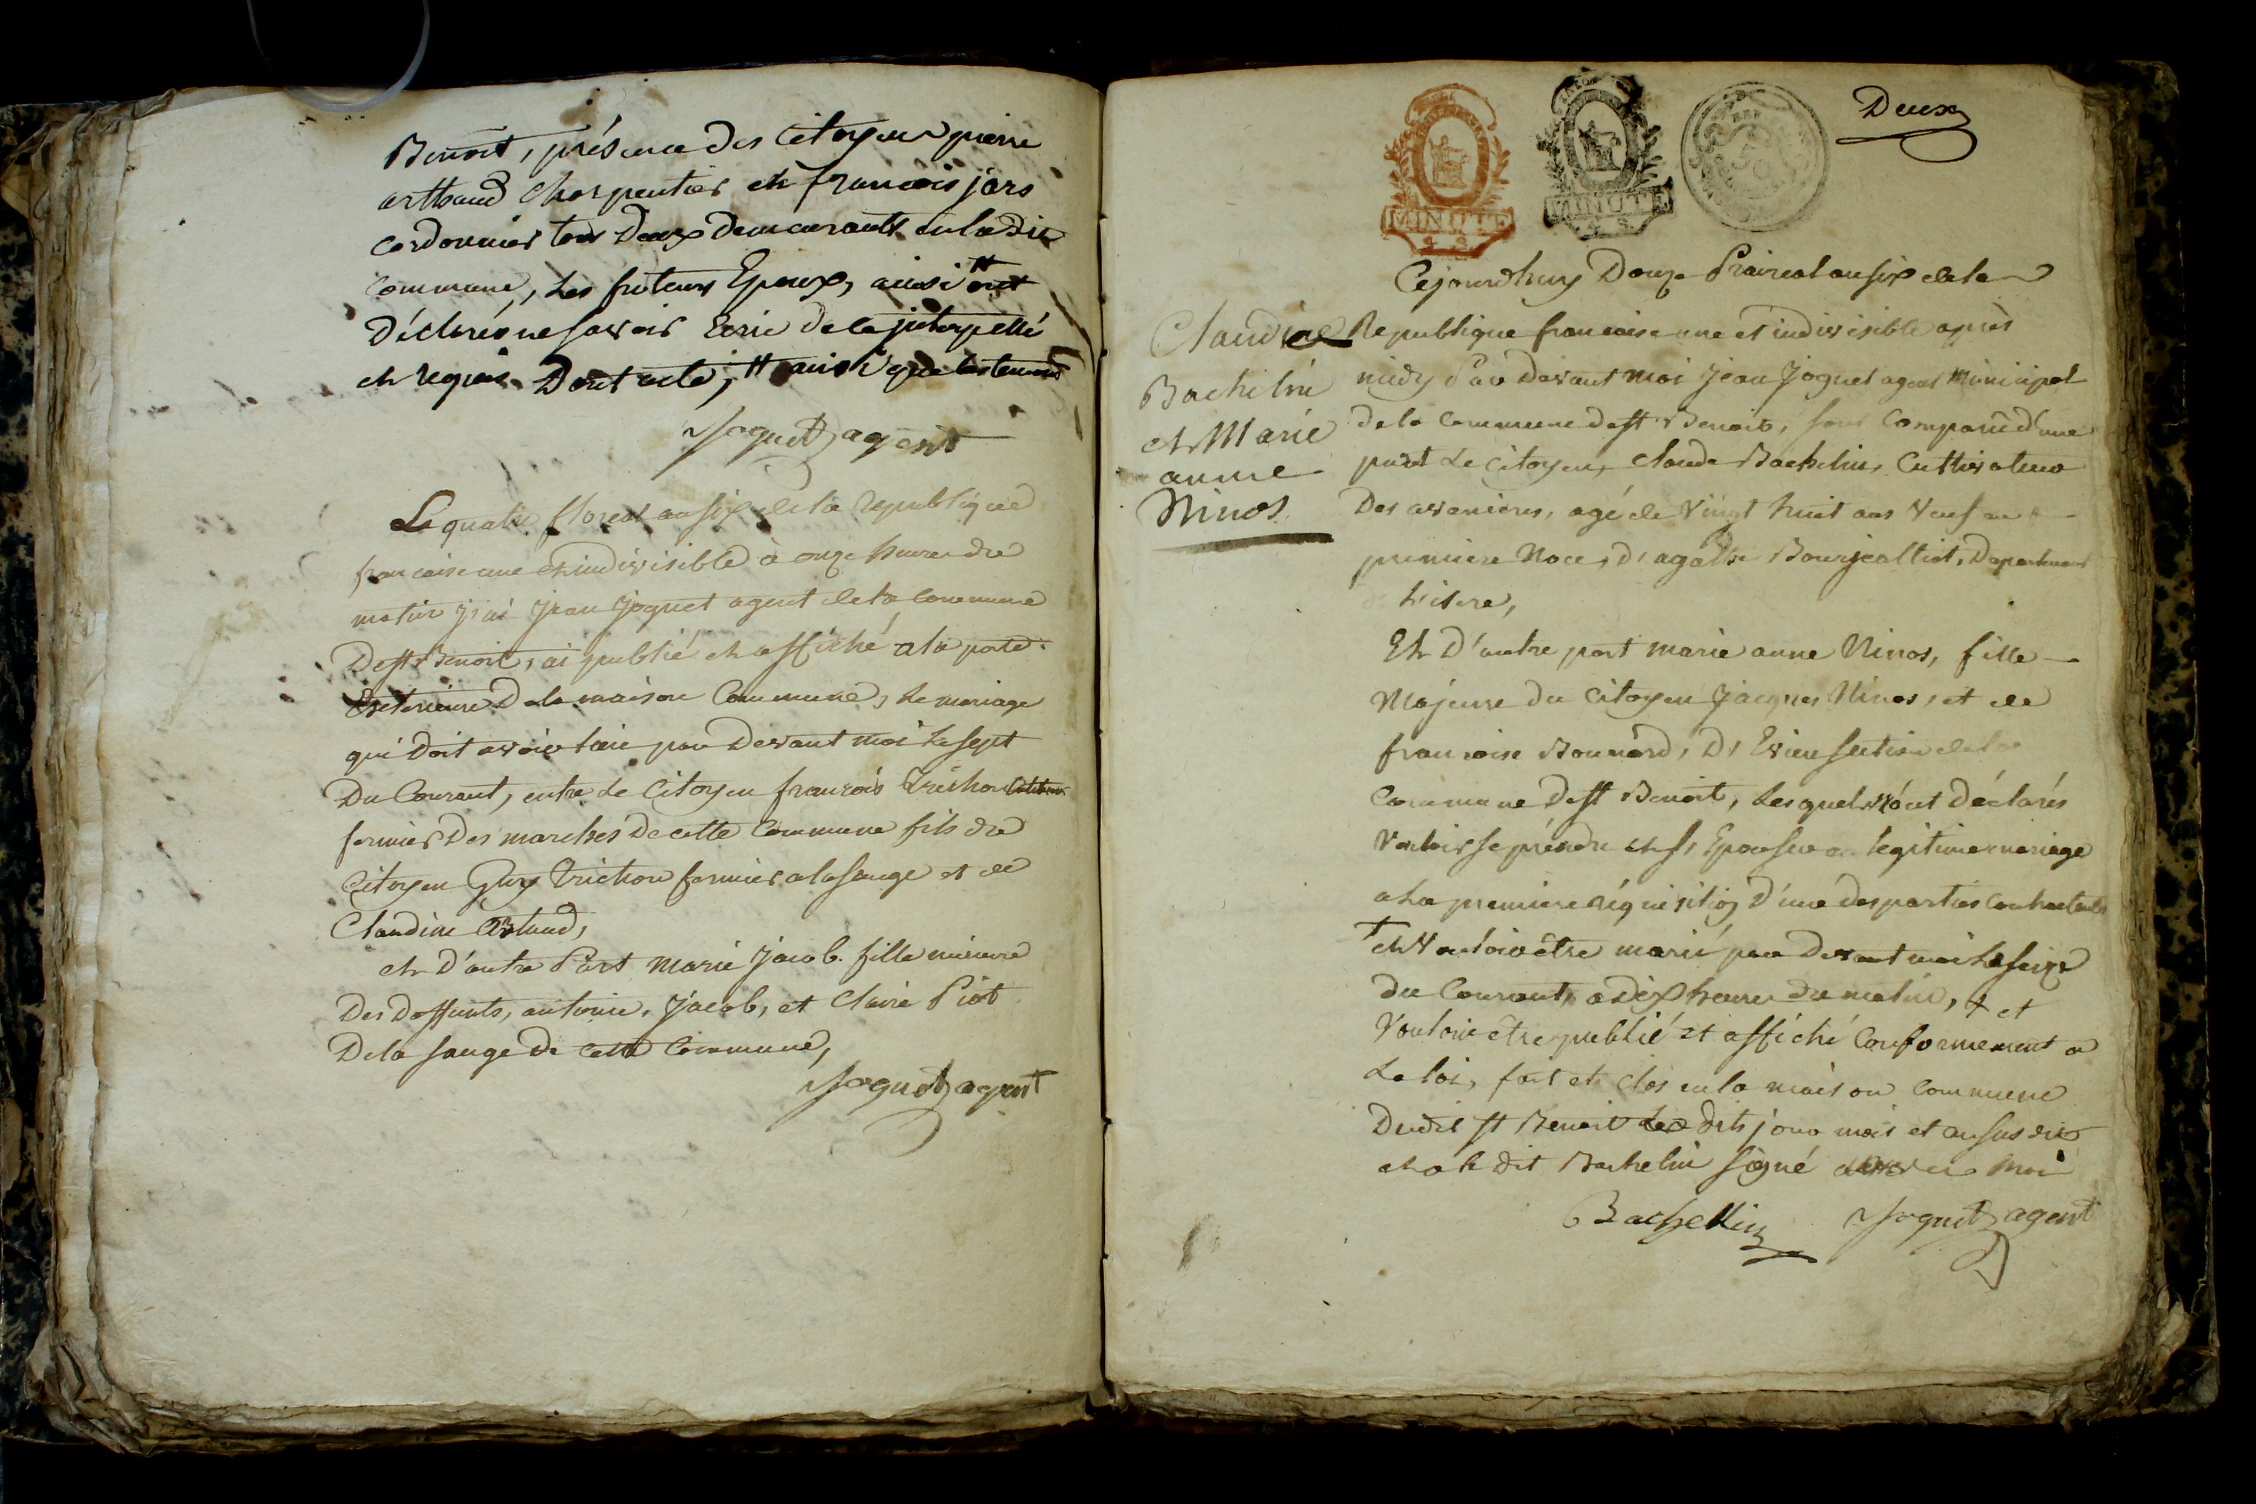 Benoit, présence des Citoyens pierre
arthaud Charpentier et françois jars
cordonnier tous Deux demeurants en la dite
commune, Les futeurs Epoux, ainsi # ont
Déclarés ne savoir Ecrir de ce jnterpellé
et requis Dont acte, # ainsi que les temoins
Joguet agent
Le quatre floreal an six de la republique
francaise une et indivisible à onze heures du
matin j'ai Jean Joguet agent de la commune
De st Benoit, ai publié et affiché a la porte
Exterieure De la maison Commune, Le mariage
qui doit avoir lieu par Devant moi Le sept
Du Courant, entre Le Citoyen francois Trichon
fermier Des marches De cette Commune fils du
Citoyen Guy Trichon fermier a la sauge et de
Claudine Artaud,
et D'autre Part Marie Jacob fille mineure
Des Deffunts, antoine Jacob, et Claire Piot
De la sauge De cette Commune,
Joguet agent
MINUTE
MINUTE
Deux
Claude
Bachelin
et Marie
anne
Ninos
Cejourdhuy Douze Prairial an six de la
Republique francaise une et indivisible après
midy Par Devant Moi Jean Joguet agent Municipal
de la Commune de st Benoit, sont Comparu d'une
part Le Citoyen Claude Bachelin, Cultivateur
Des avenieres, agé de Vingt huit ans Veuf en
premiere Noce, d'agathe Bourjealliat, Departement
L'isere,
Et D'autre part marie anne Ninos, fille
Majeure du Citoyen Jacques Ninos, et de
francoise Bonnard, D'Evieu section de la
Commune De st Benoit, Lesquels ont Déclarés
Vouloir se prendre et s'Epouser en legitime mariage
a La premiere réquisition D'une des parties Contractantes
et Vouloir être marié par Devant moi Le seize
du Courant, a dix heures du matin, + et
Vouloir être publié et affiché Conformement a
La loi, fait et Clos en la maison Commune
Dudit st Benoit Les dits jour mois et an susdits
et a le dit Bachelin signé avec Moi
Bachellin Joguet agent